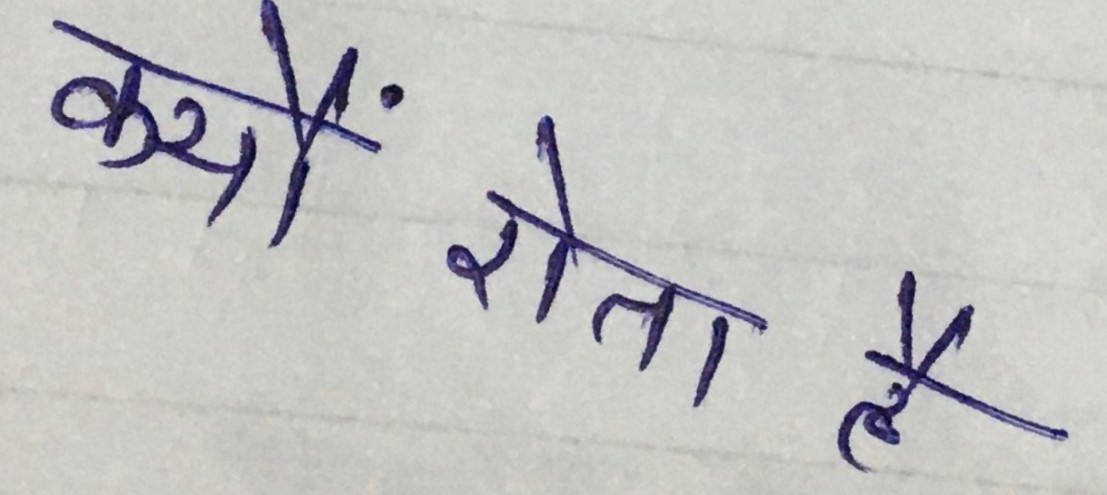 क्यौं रोता है